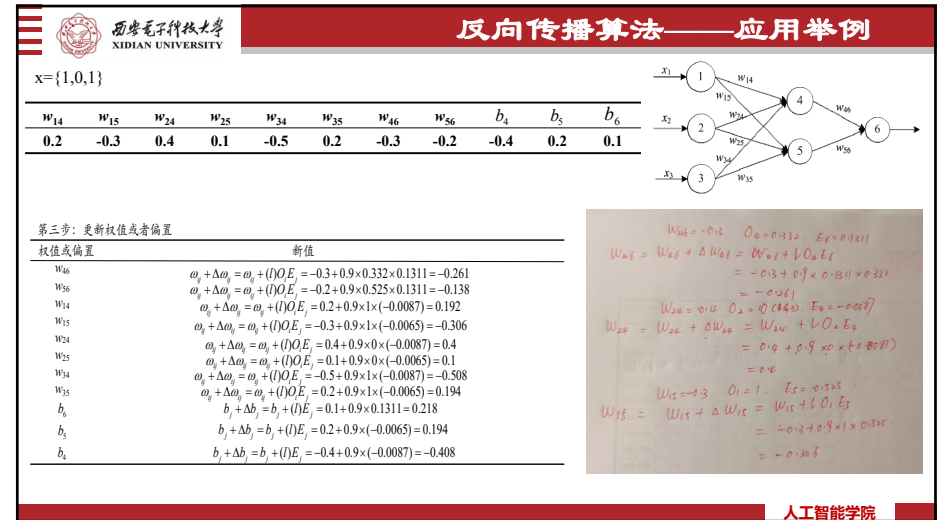 西安电子科技大学
XIDIAN UNIVERSITY
反向传播算法——应用举例
x={1,0,1}
w14 w15 w24 w25 w34 w35 w46 w56 b4 b5 b6
0.2 -0.3 0.4 0.1 -0.5 0.2 -0.3 -0.2 -0.4 0.2 0.1
x1 1 w14
w15 4 w46
x2 2 w24 6
w25 5 w56
w34
x3 3 w35
第三步：更新权值或者偏置
权值或偏置 新值
w46 ωij+Δωij=ωij+(l)OiEj=-0.3+0.9×0.332×0.1311=-0.261
w56 ωij+Δωij=ωij+(l)OiEj=-0.2+0.9×0.525×0.1311=-0.138
w14 ωij+Δωij=ωij+(l)OiEj=0.2+0.9×1×(-0.0087)=0.192
w15 ωij+Δωij=ωij+(l)OiEj=-0.3+0.9×1×(-0.0065)=-0.306
w24 ωij+Δωij=ωij+(l)OiEj=0.4+0.9×0×(-0.0087)=0.4
w25 ωij+Δωij=ωij+(l)OiEj=0.1+0.9×0×(-0.0065)=0.1
w34 ωij+Δωij=ωij+(l)OiEj=-0.5+0.9×1×(-0.0087)=-0.508
w35 ωij+Δωij=ωij+(l)OiEj=0.2+0.9×1×(-0.0065)=0.194
b6 bj+Δbj=bj+(l)Ej=0.1+0.9×0.1311=0.218
b5 bj+Δbj=bj+(l)Ej=0.2+0.9×(-0.0065)=0.194
b4 bj+Δbj=bj+(l)Ej=-0.4+0.9×(-0.0087)=-0.408
W46=-0.3 O4=0.332. E6=0.1311
W46 = W46+ΔW46 = W46+lO4E6
= -0.3+0.9×0.1311×0.332
= -0.261
W24=0.4 O2=0 E4=-0.0087
W24 = W24+ΔW24 = W24+lO2E4
= 0.4+0.9×0×(-0.0087)
= 0.4
W15=-0.3. O1=1. E5=0.525.
W15 = W15+ΔW15 = W15+lO1E5
= -0.3+0.9×1×0.525.
= -0.306
人工智能学院